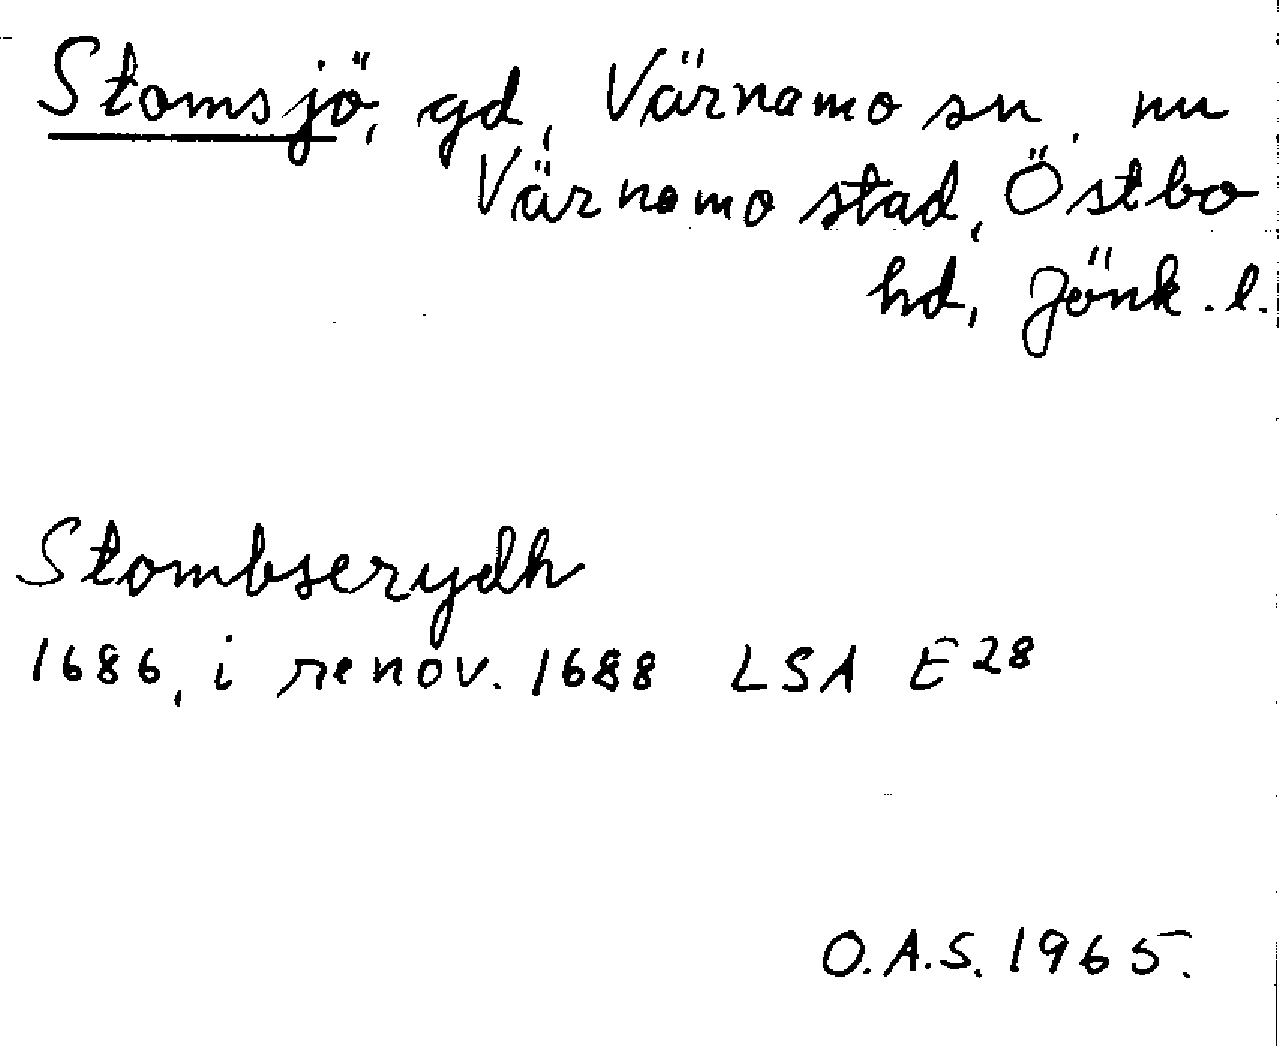 Stomsjö, gd, Värnamo sn, nu
Värnamo stad, Östbo
hd, Jönk. l.
Stombserydh
1686, i renov. 1688 LSA E28
O.A.S. 1965.